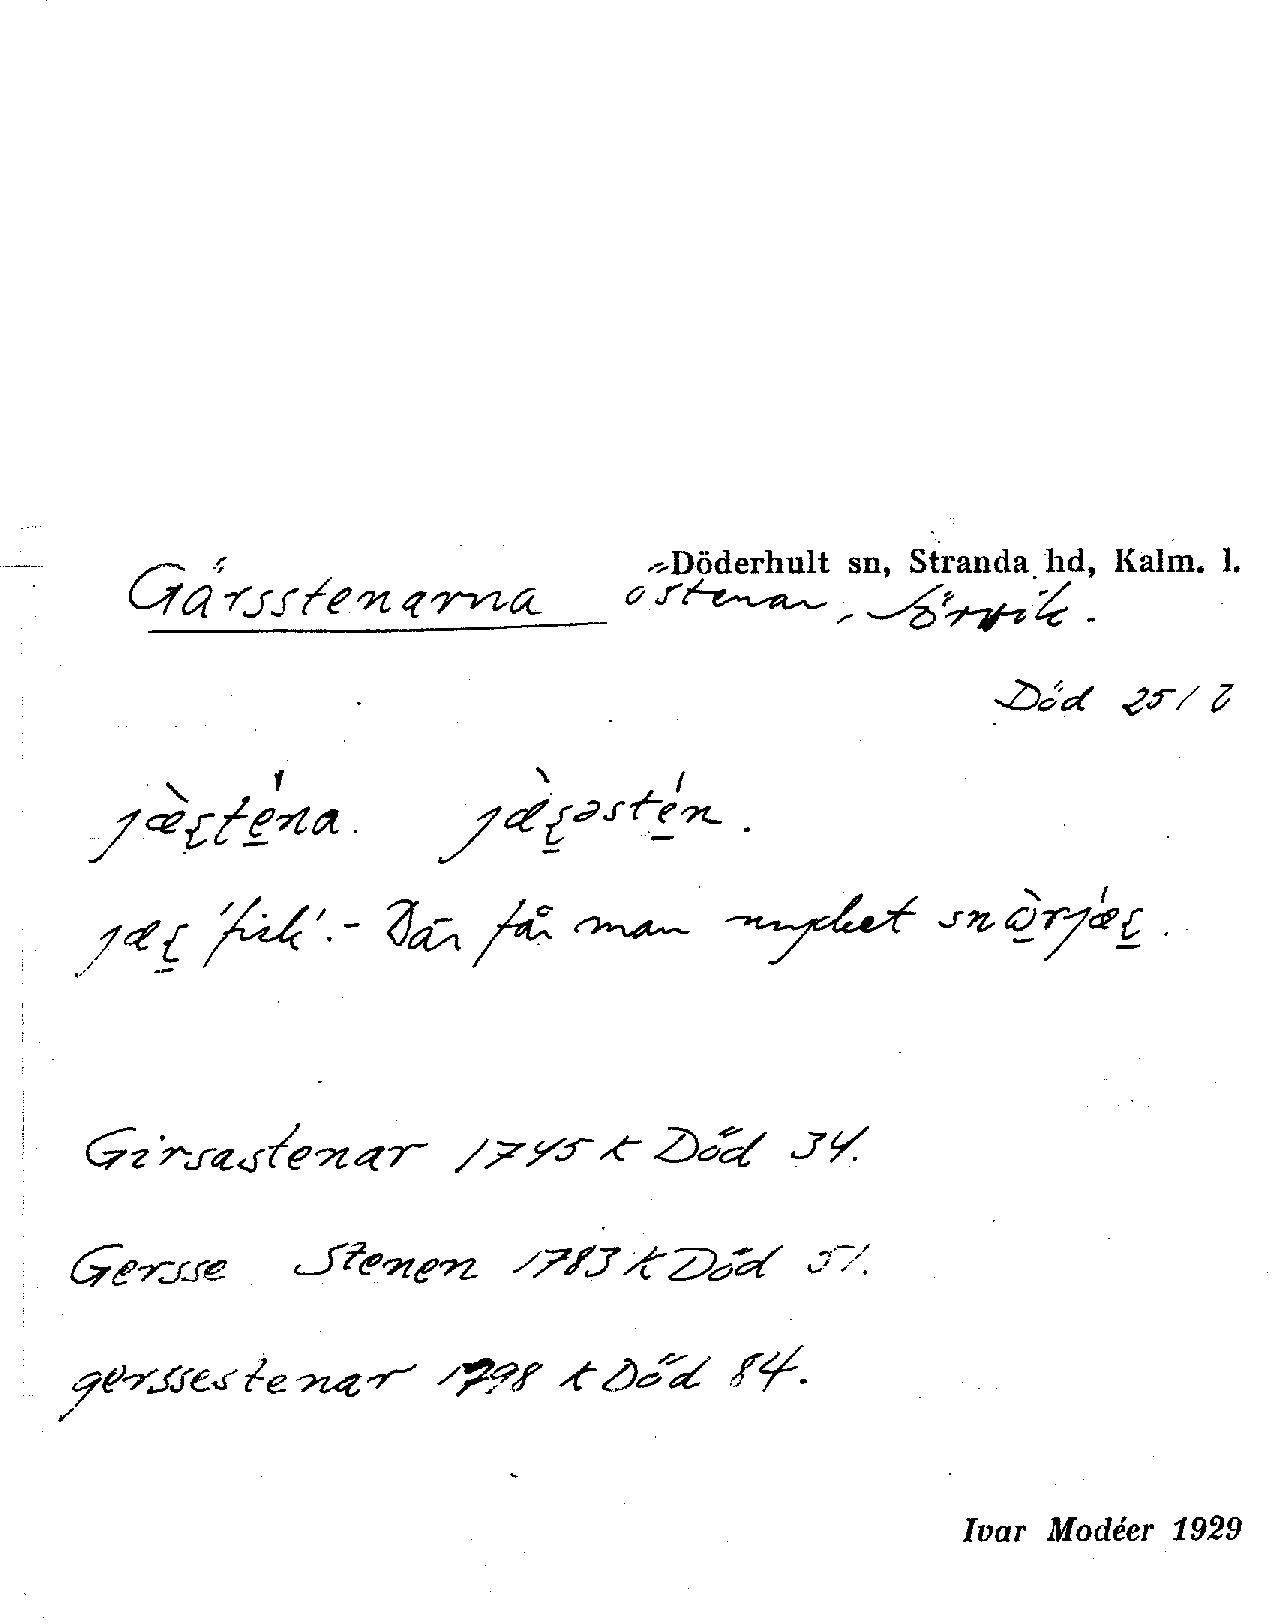 Gärsstenarna
Döderhult sn, Stranda hd, Kalm. l.
östenar, Sörvik.
Död 25/7
jæ̀ʂténa. jæ̀ʂəstén.
jæʂ 'fisk'. – Där får man mycket snòrjæ̀ʂ.
Girsastenar 1745 k Död 34.
Gersse Stenen 1783 k Död 51.
gerssestenar 1798 k Död 84.
Ivar Modéer 1929